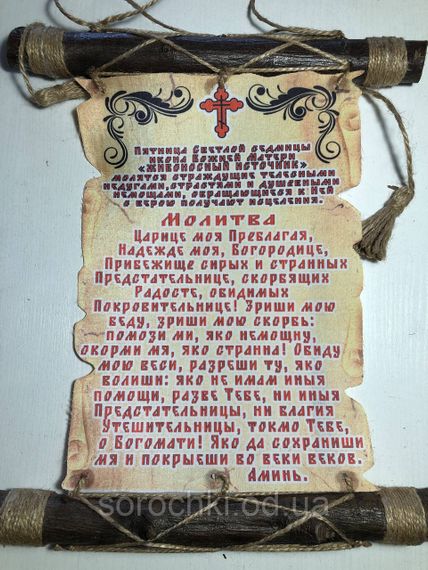 Пятница Светлой седмицы
икона Божией Матери
«Живоносный источник»
молятся страждущие телесными
недугами, страстями и душевными
немощами, обращающиеся к Ней
с верою получают исцеления.
Молитва
Царице моя Преблагая,
Надежде моя, Богородице,
Прибежище сирых и странных
Предстательнице, скорбящих
Радосте, обидимых
Покровительнице! Зриши мою
беду, зриши мою скорбь:
помози ми, яко немощну,
окорми мя, яко странна! Обиду
мою веси, разреши ту, яко
волиши: яко не имам иныя
помощи, разве Тебе, ни иныя
Предстательницы, ни благия
Утешительницы, токмо Тебе,
о Богомати! Яко да сохраниши
мя и покрыеши во веки веков.
Аминь.
sorochki.od.ua